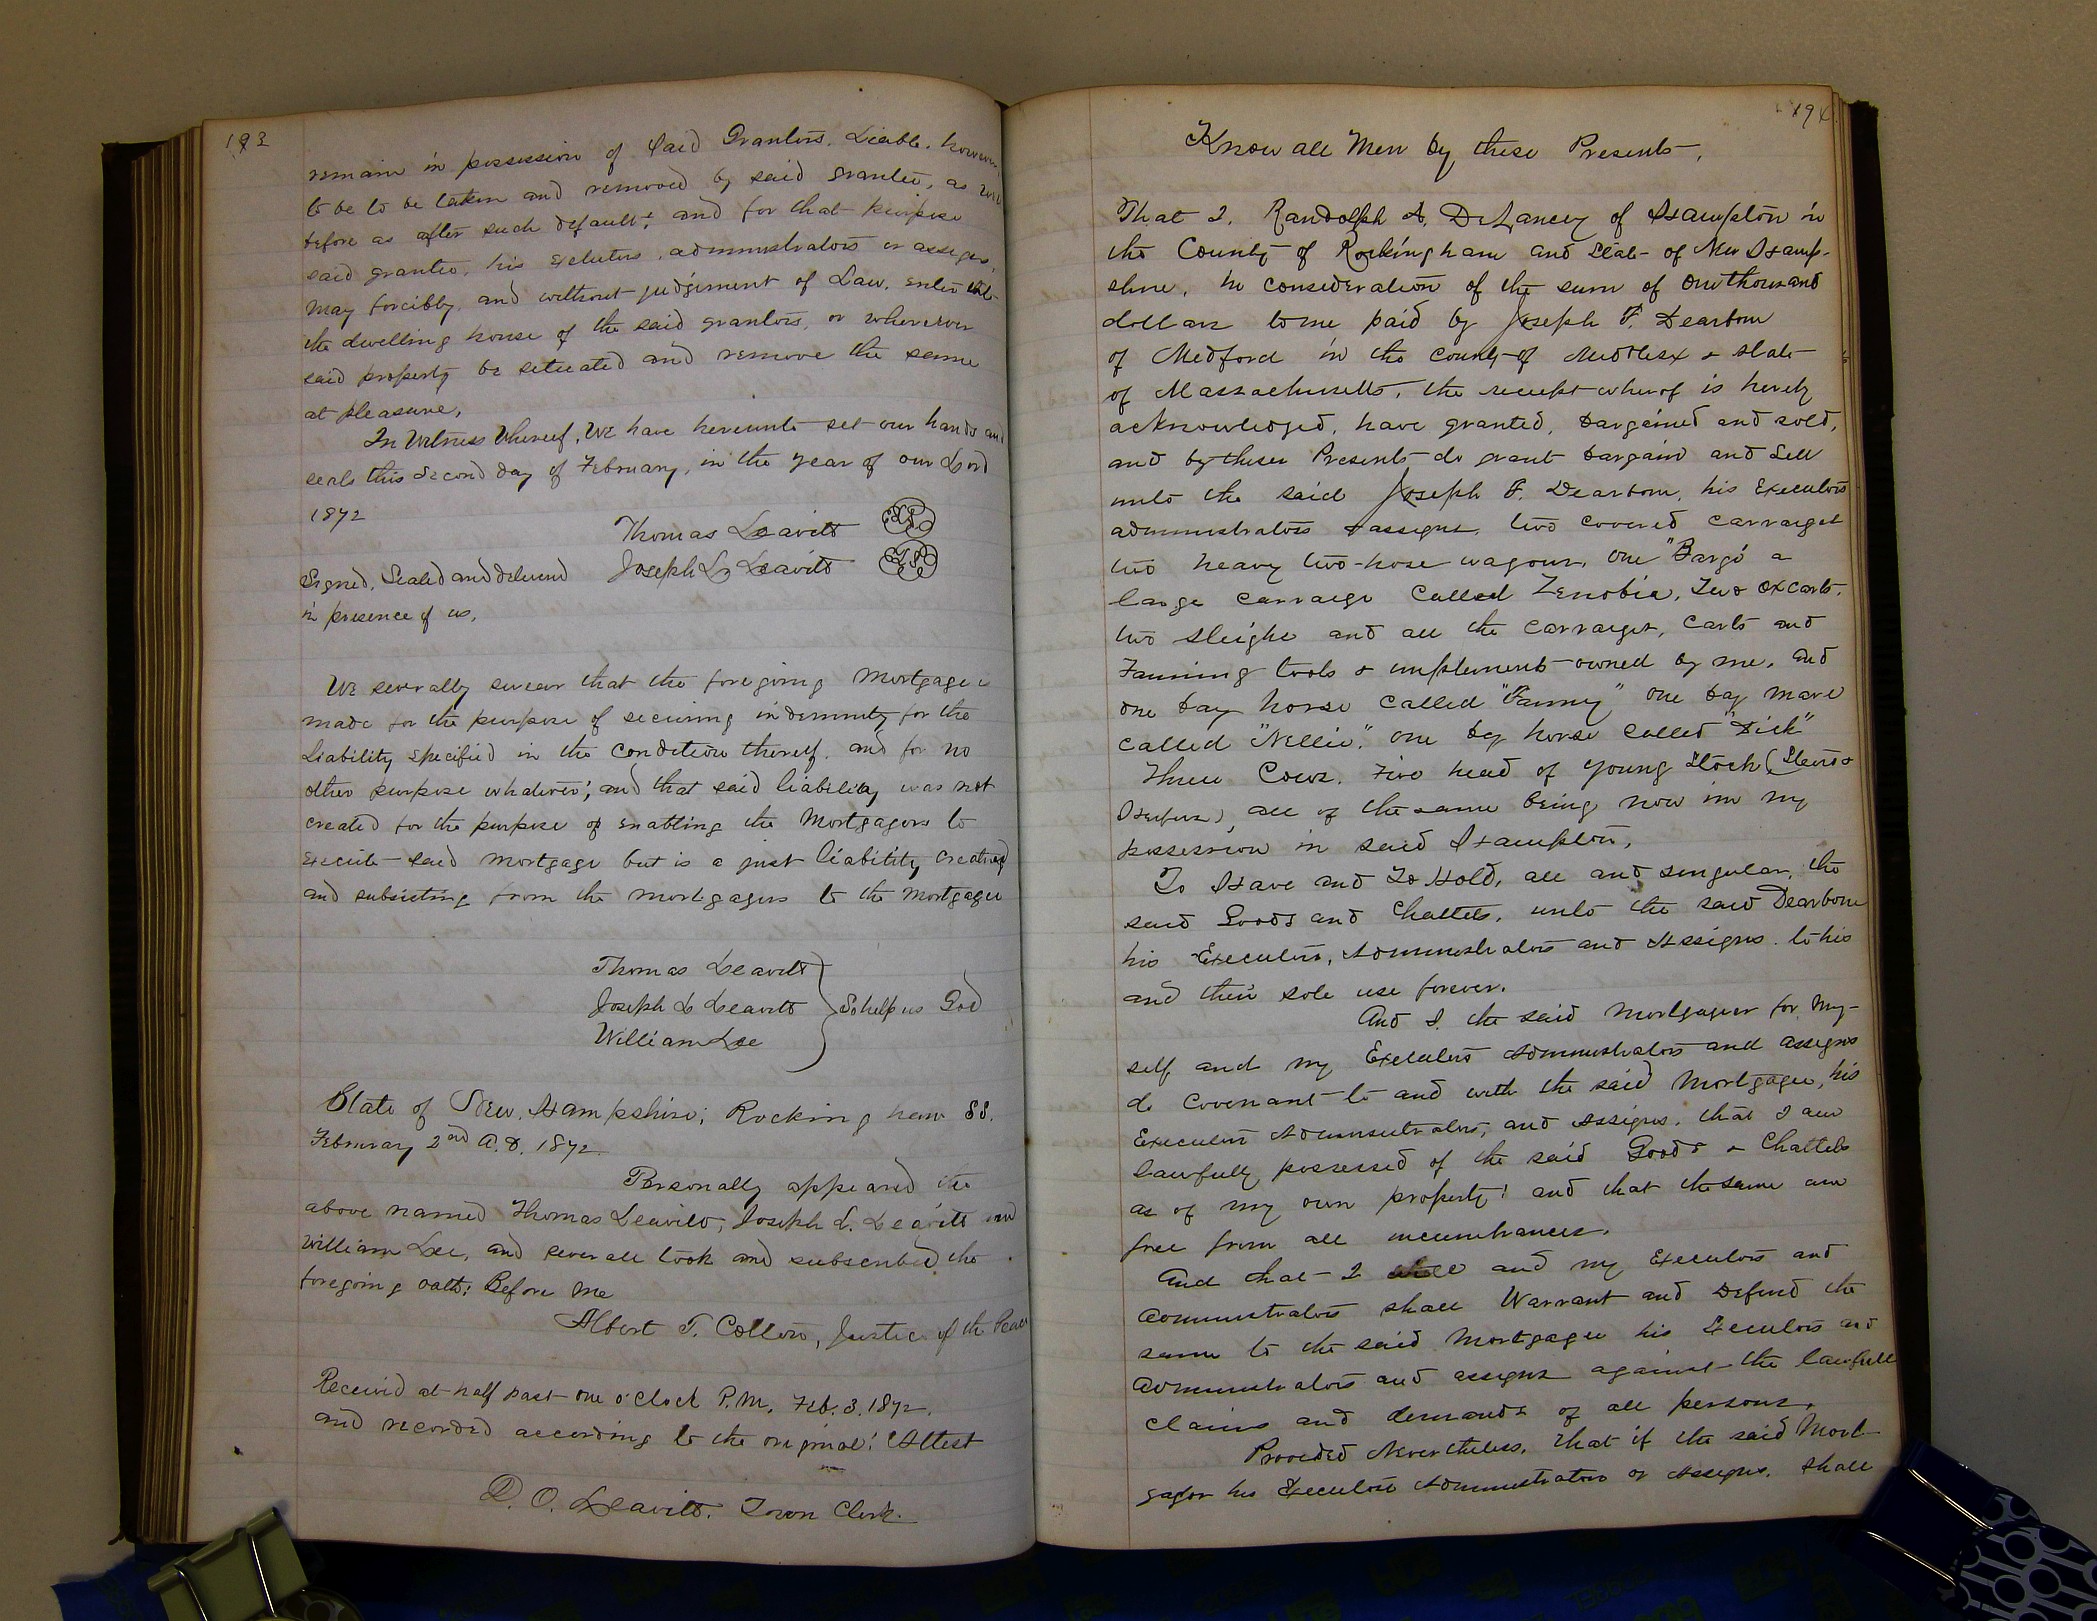 193
remain in possession of said Grantors. Liable. however
to be to be taken and removed by said grantee, as well
before as after such default; and for that purpose
said grantee, his Executors, administrators or assigns,
may forcibly, and without judgement of Law, enter into
the dwelling house of the said grantors, or wherever
said property be setuated and remove the same
at pleasure,
In Witness Whereof, We have hereunto set our hands and
seals this Second day of February, in the year of our Lord
1872
Thomas Leavitt
Joseph L Leavitt
Signed, Sealed and delivered
in presence of us,
We severally swear that the foregoing Mortgage is
made for the purpose of securing indemnity for the
Liability specified in the condition thereof. and for no
other purpose whatever; and that said liability was not
created for the purpose of enabling the Mortgagors to
Execute said Mortgage but is a just liability, created
and subsisting from the mortgagors to the Mortgagee
Thomas Leavitt
Joseph L Leavitt So help us God
William Lee
State of New Hampshire; Rockingham SS.
February 2nd A.D. 1872.
Personally appeared the
above named Thomas Leavitt, Joseph L. Leavitt and
William Lee, and severall took and subscribed the
foregoing oath; Before Me
Albert T. Cotton, Justice of the Peace
Received at half past one o'clock P.M. Feb. 3. 1872.
and recorded according to the original; Attest
D. O. Leavitt. Town Clerk.
194
Know all Men by these Presents,
That I, Randolph A. DeLancey of Hampton in
the County of Rockingham and State of New Hamp-
shire, in consideration of the sum of one thousand
dollars to me paid by Joseph F. Dearborn
of Medford in the county of Middlesex & State
of Massachusetts, the receipt wherof is hereby
acknowledged, have granted, bargained and sold,
and by these Presents do grant bargain and Sell
unto the said Joseph F. Dearborn, his Executors
administrators & assigns, two covered carraiges
two heavy two-horse wagons, one "Barge" a
large carraige called Zenobia, Two ox carts,
two sleighs and all the carraiges, carts and
Farming tools & implements owned by me, and
one bay horse called "Fanny" one bay mare
called "Nellie," one bay horse called "Dick"
Three Cows. Five head of young Stock (Steers &
Heifers), all of the same being now in my
possession in said Hampton,
To Have and To Hold, all and singular, the
said Goods and Chattels, unto the said Dearborn
his Executors, Administrators and Assigns. to his
and their sole use forever.
And I. the said Mortgagor for My-
self and my Executors Administrators and assigns
do covenant to and with the said Mortgagee, his
Executors Administrators, and Assigns, that I am
lawfully possessed of the said Goods & Chattels
as of my own property; and that the same are
free from all incumbrances.
And that I and my Executors and
administrators shall Warrant and Defend the
same to the said Mortgagee his Executors and
administrators and assigns against the lawfull
claims and demands of all persons.
Provided Nevertheless, that if the said Mort-
gagor his Executors Administrators or Assigns, shall